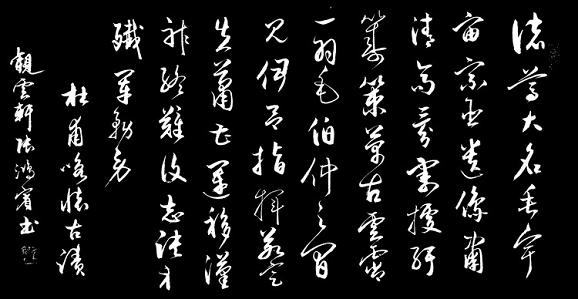 諸葛大名垂宇
宙宗臣遺像肅
清高三分割據紆
籌策萬古雲霄
一羽毛伯仲之間
見伊呂指揮若定
失蕭曹運移漢
祚終難復志決身
殲軍務勞
杜甫咏懷古蹟
雲軒鴻賓書